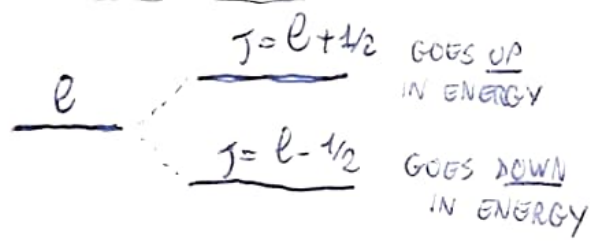 J = ℓ + 1/2 GOES UP
IN ENERGY
ℓ
J = ℓ - 1/2 GOES DOWN
IN ENERGY